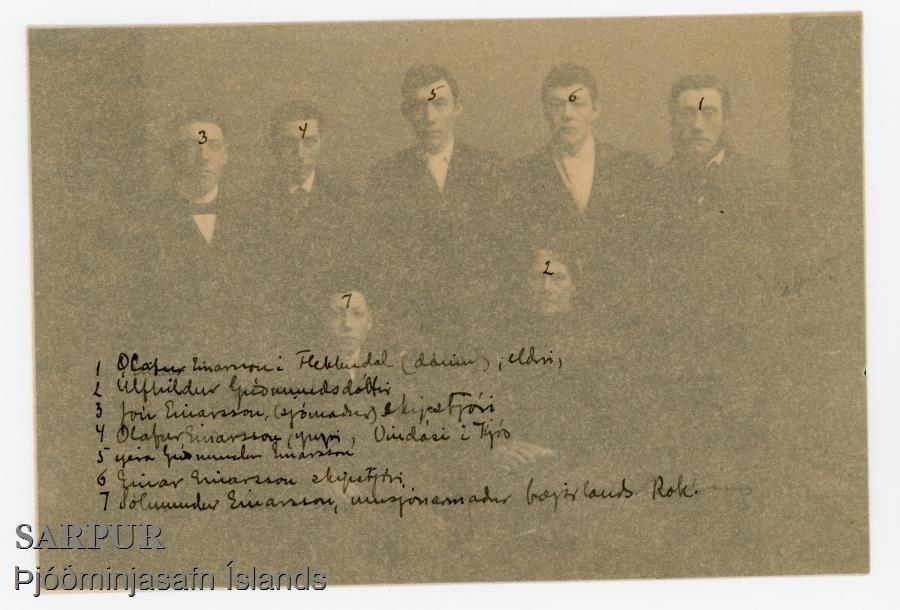 3 4 5 6 1
7 2
1 Ólafur Einarsson í Flekkudal (dáinn), eldri,
2 Úlfhildur Guðmundsdóttir
3 Jón Einarsson, (sjómaður) skipstjóri
4 Ólafur Einarsson, yngri, Vindási í Kjós
5 séra Guðmundur Einarsson
6 Einar Einarsson skipstjóri
7 Sólmundur Einarsson, umsjónarmaður bæjarlands Rvk.
SARPUR
Þjóðminjasafn Íslands